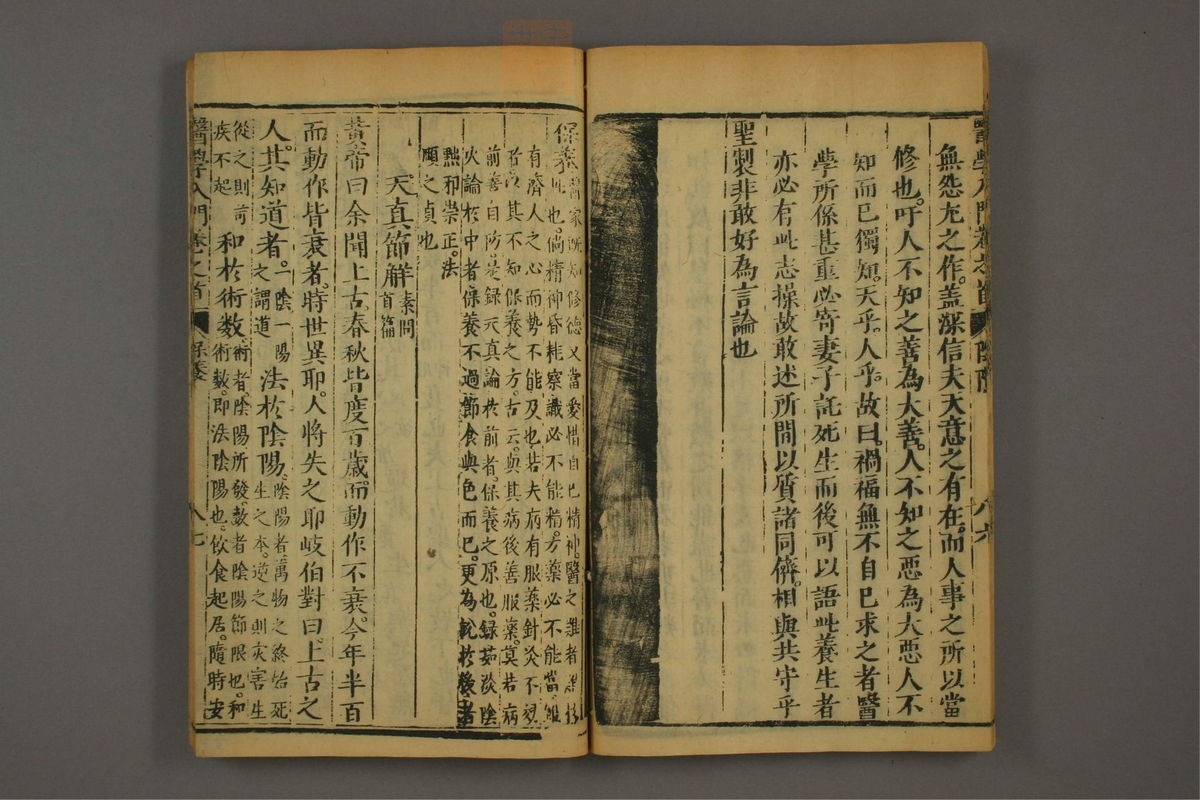 無怨尤之作。蓋深信夫天意之有在。而人事之所以當
修也。吁人不知之善為大善。人不知之惡為大惡人不
知而已獨知。天乎。人乎。故曰禍福無不自巳求之者醫
學所係甚重必寄妻子託死生而後可以語此養生者
亦必有此志操故敢述所聞以質諸同儕。相與共守乎
聖製非敢好為言論也
醫學入門卷之首 陰隲 八六
保養
醫家既知修德又當愛惜自已精神。醫之難者
此也。倘精神昏耗察識必不能精。方藥必不能當。雖
有濟人之心而勢不能及也。若夫病有服藥針灸不
者。以其不知保養之方。古云。與其病後善服藥。莫若病
前善自防。是錄天真論於前者。保養之原也。錄茹淡陰
火論於中者保養不過節食與色而已。更為說於後者
黜邪崇正。法
頤之貞也
天真節解 素問首篇
黃帝曰余聞上古春秋皆度百歲。而動作不衰。今年半百
而動作皆衰者。時世異耶。人將失之耶岐伯對曰。上古之
人。其知道者。一陰一陽之謂道 法於陰陽。陰陽者萬物之終始死生之本。逆之則災害生
從之則苛疾不起 和於術數。術者。陰陽所發。數者陰陽節限也。和術數。即法陰陽也。飲食起居。隨時安
醫學入門卷之首 保養 八七